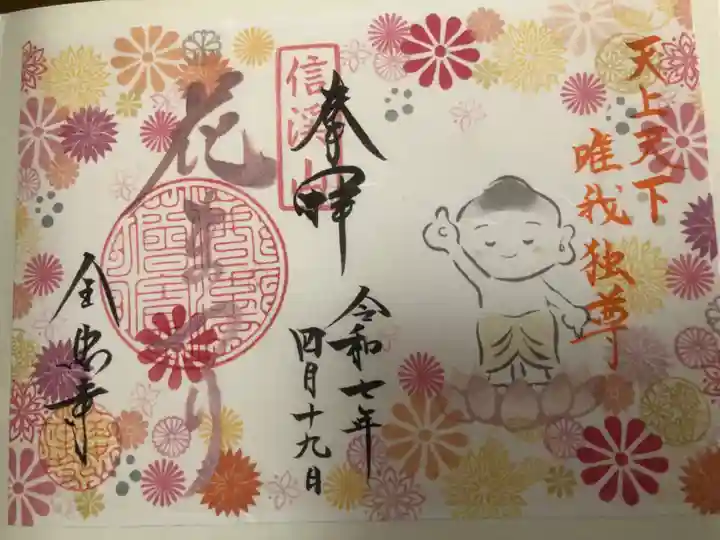 天上天下
唯我独尊
奉拝
令和七年
四月十九日
花まつり
全忠寺